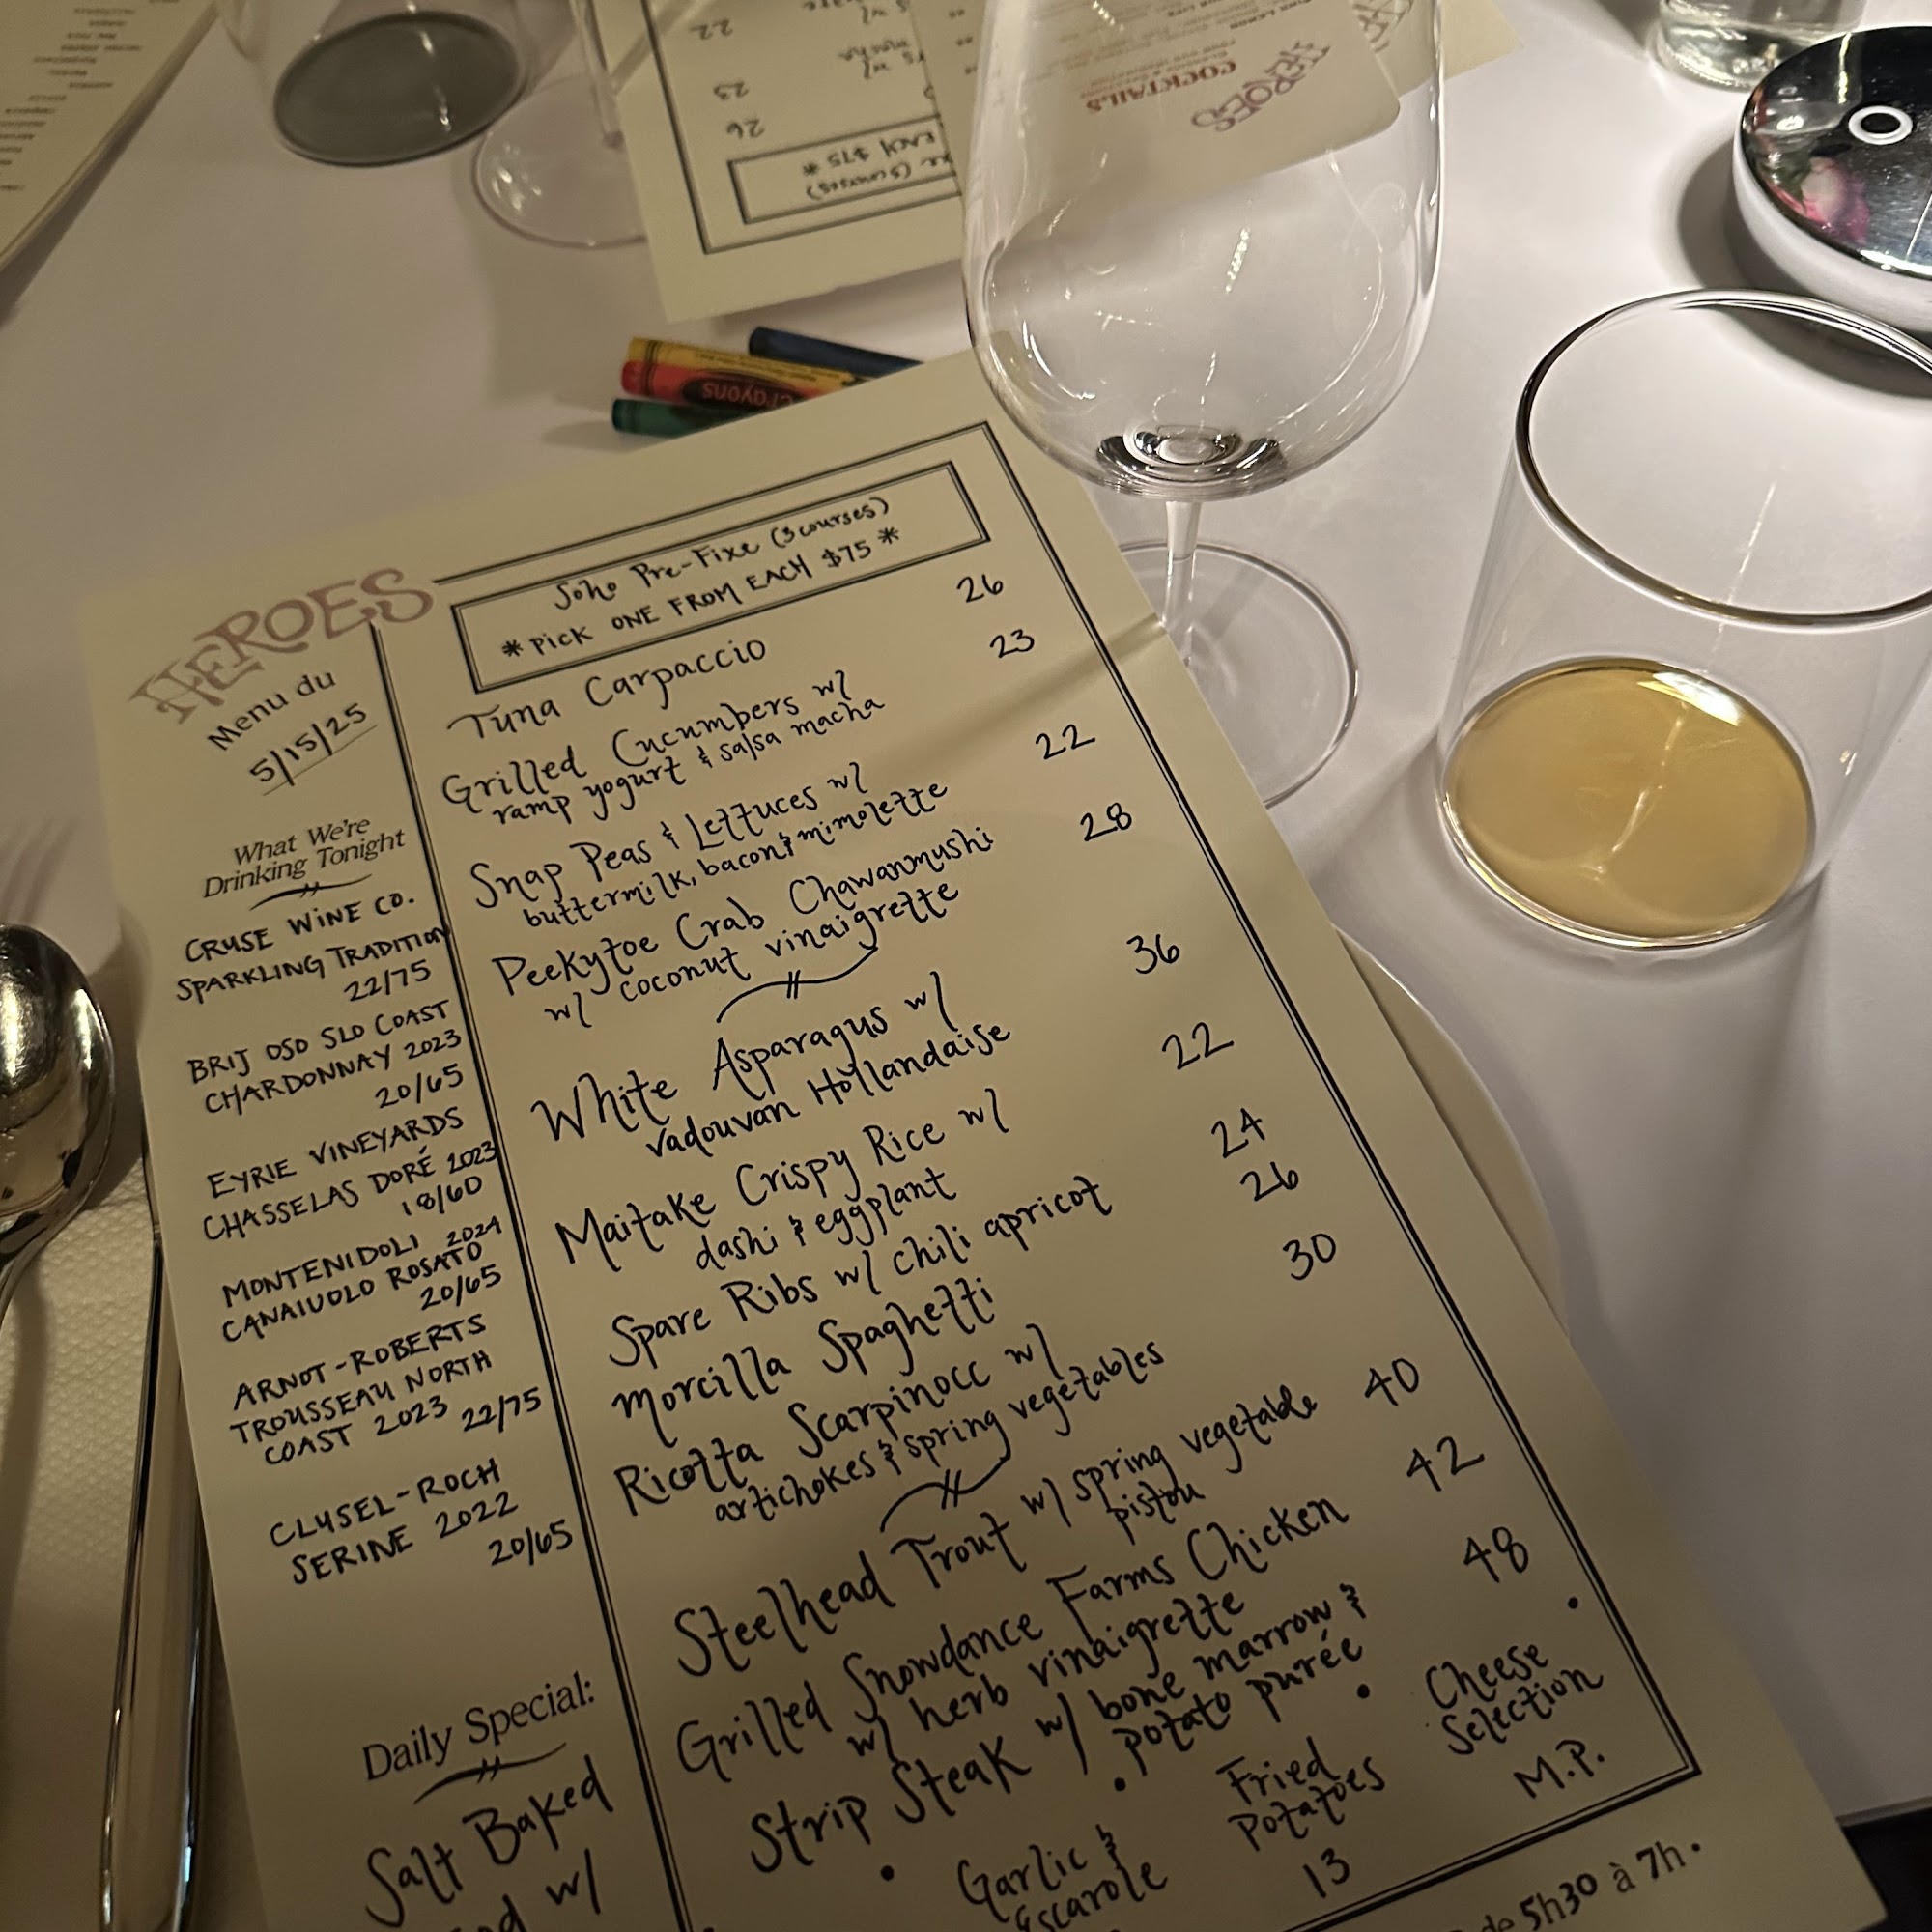 HEROES
COCKTAILS
22
23
26
EACH $75 *
(3 courses)
crayons
HEROES
Menu du
5/15/25
What We're
Drinking Tonight
CRUSE WINE CO.
SPARKLING TRADITION
22/75
BRIJ OSO SLO COAST
CHARDONNAY 2023
20/65
EYRIE VINEYARDS
CHASSELAS DORÉ 2023
18/60
MONTENIDOLI 2024
CANAIUOLO ROSATO
20/65
ARNOT-ROBERTS
TROUSSEAU NORTH
COAST 2023
22/75
CLUSEL-ROCH
SERINE 2022
20/65
Daily Special:
Salt Baked
w/
Soho Pre-Fixe (3 courses)
* PICK ONE FROM EACH $75 *
Tuna Carpaccio 26
Grilled Cucumbers w/ 23
ramp yogurt & salsa macha
Snap Peas & Lettuces w/ 22
buttermilk, bacon & mimolette
Peekytoe Crab Chawanmushi 28
w/ coconut vinaigrette
White Asparagus w/ 36
Vadouvan Hollandaise
Maitake Crispy Rice w/ 22
dashi & eggplant
Spare Ribs w/ chili apricot 24
Morcilla Spaghetti 26
Ricotta Scarpinocc w/ 30
artichokes & spring vegetables
Steelhead Trout w/ spring vegetable 40
pistou
Grilled Snowdance Farms Chicken 42
w/ herb vinaigrette
Strip Steak w/ bone marrow & 48
potato purée
Garlic &
Escarole
Fried
Potatoes
13
Cheese
Selection
M.P.
de 5h30 à 7h.